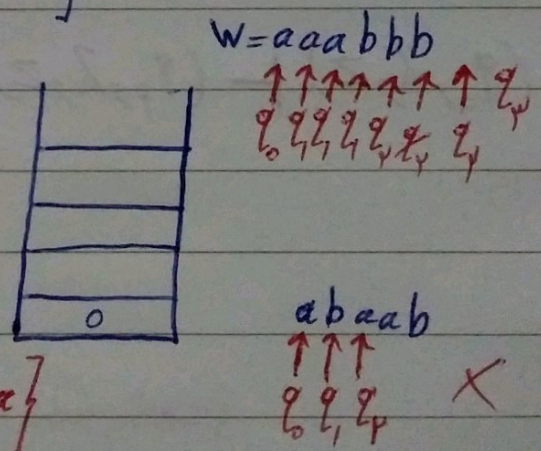 W=aaabbb
↑ ↑ ↑ ↑ ↑ ↑ ↑ q۲
q₀ q₁ q₁ q₁ q۲ q۲ q۲
0
abaab
↑ ↑ ↑
q₀ q₁ q۲ ×
}